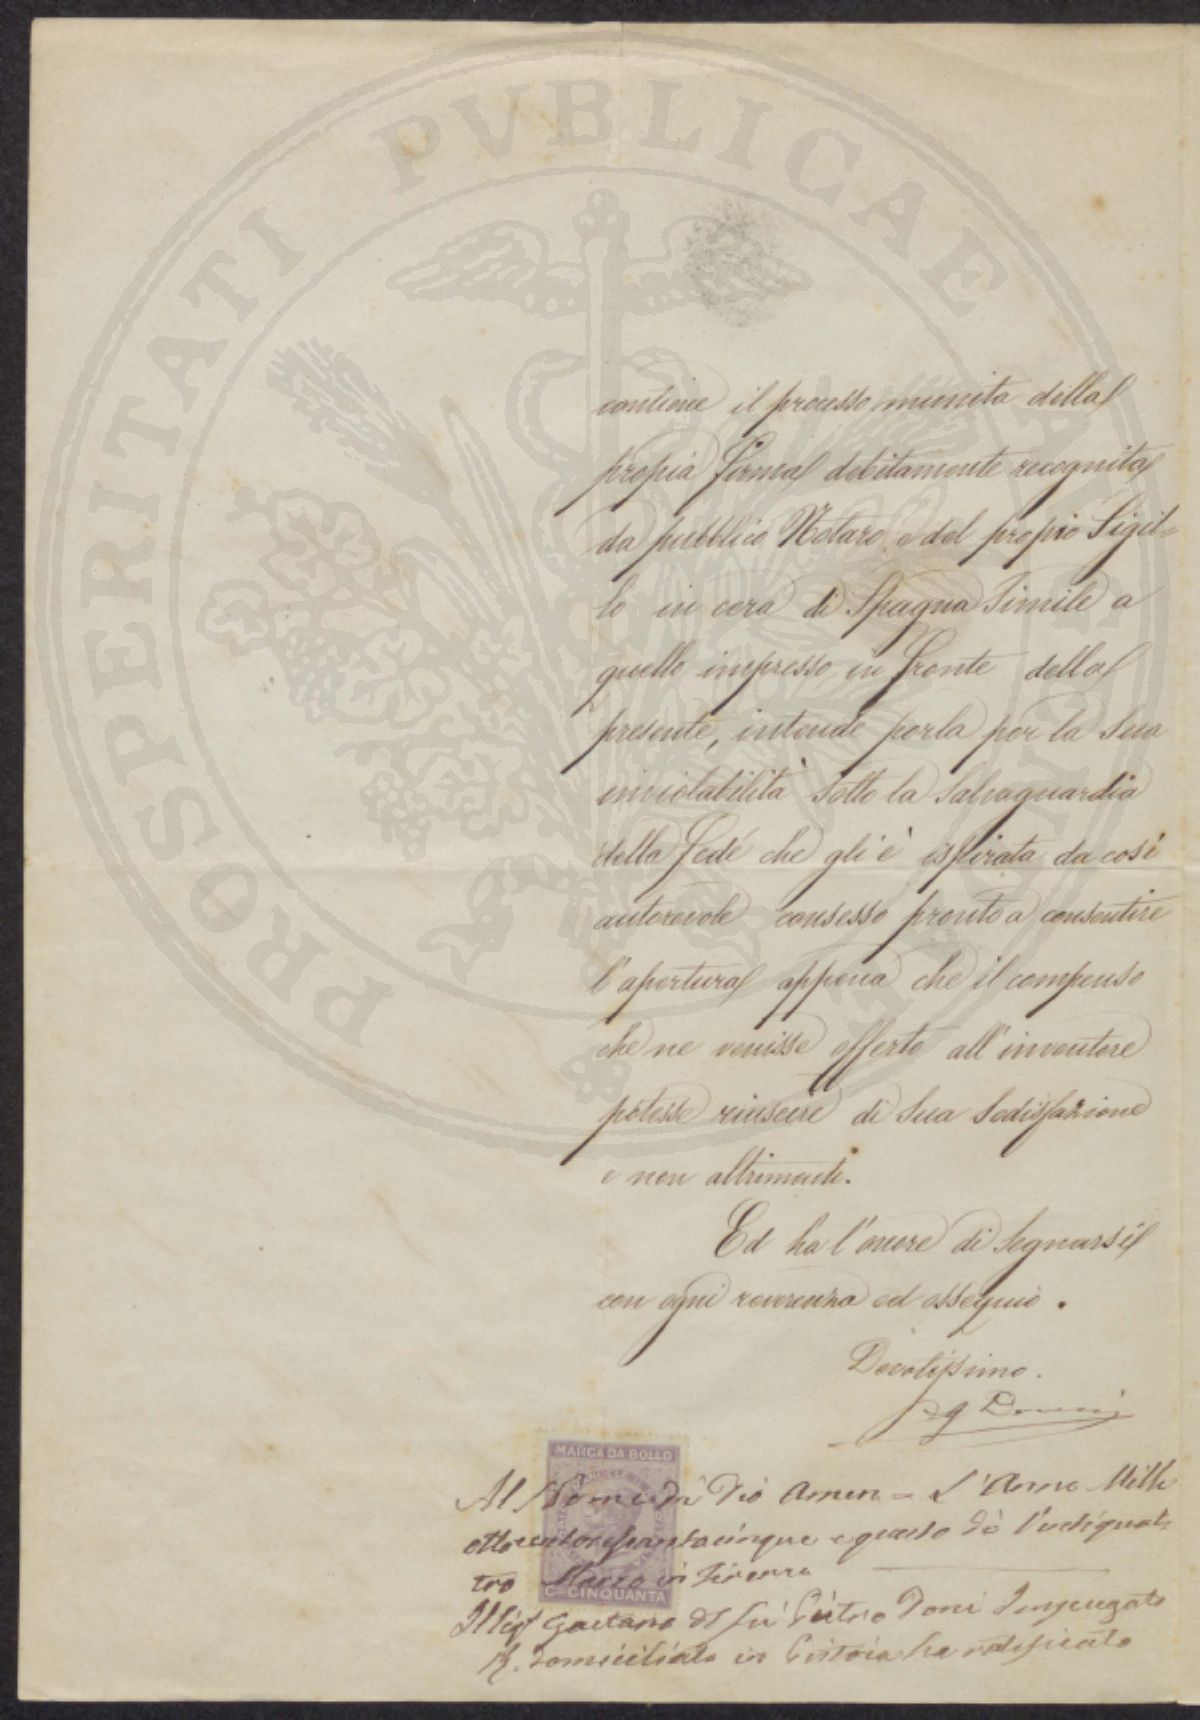 PROSPERITATI PVBLICAE
contiene il processo munita della
propia firma debitamente recognita
da pubblico Notaro e del propio Sigil=
lo in cera di Spagna Simile a
quello impresso in fronte della
presente, intende porla per la Sua
inviolabilità Sotto la Salvaguardia
della fede che gli è ispirata da così
autorevole consesso pronto a consentire
l'apertura appena che il compenso
che ne venisse offerto all'inventore
potesse riuscire di Sua Sodisfazione
e non altrimenti.
Ed ha l'onore di Segnarsi
con ogni reverenza ed ossequio.
Devotissimo.
MARCA DA BOLLO
Al Nome di Dio Amen = L'Anno Mille
ottocentosessantacinque e questo dì
tro Marzo in Firenze
C. CINQUANTA
Il Sigr Gaetano del fu Pietro Doni Impiegato
R. domiciliato in Pistoia ha ratificato